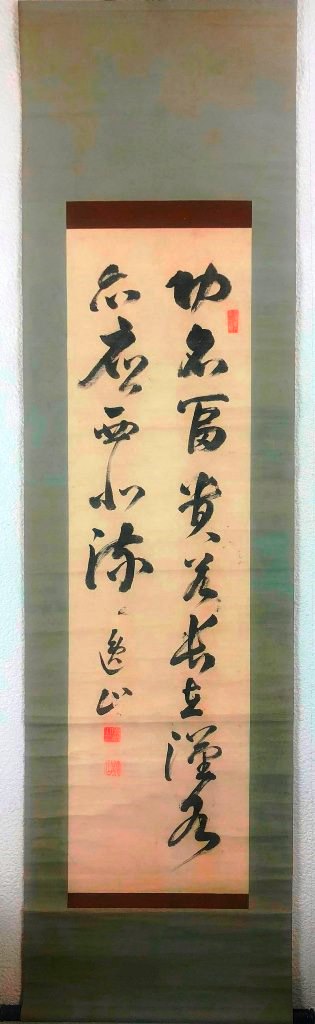 功名冨貴若長在漢水
亦應西北流 逸山